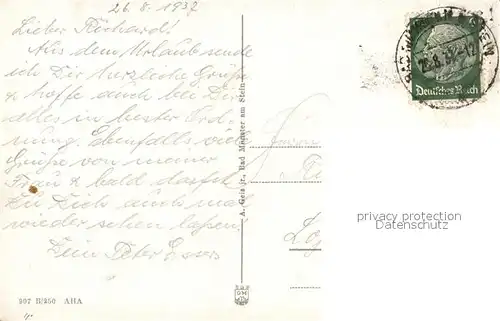 26.8.1937
Lieber Richard!
Aus dem Urlaub sende
ich Dir herzliche Grüße
& hoffe auch bei Dir
alles in bester Ord-
nung. Ebenfalls viele
Grüße von meiner
Frau & bald darfst
Du Dich auch mal
wieder sehen lassen!
Dein Peter Esser
A. Geis jr., Bad Münster am Stein
Deutsches Reich
privacy protection
Datenschutz
907 B/250 AHA